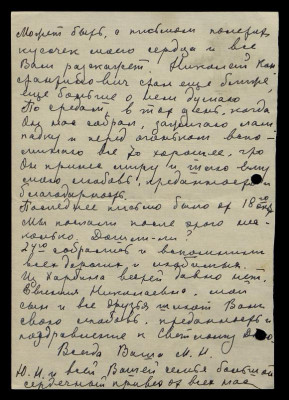 Может быть, с письмом получите
кусочек моего сердца и все
Вам расскажет. Николай Кон
стантинович стал еще ближе,
еще больше о нем думаю,
По средам, в тот день, когда
Он нас собрал, зажигаю лам
падку и перед огоньком вспо-
минаю все то хорошее, что
Он принес миру и шлю ему
мою любовь, преданность и
благодарность.
Последнее письмо было от 18го
Мы послали после этого нес-
колько. Дошли-ли?
24го собрались и вспоминали
всех дорогих и любимых.
Из Харбина вестей давно нет.
Евгения Николаевна, мой
сын и все друзья шлют Вам
свою любовь, преданность и
поздравление к Светлому Дню.
Всегда Ваша М. И.
Ю. Н. и всей Вашей семье большой
сердечный привет от всех нас